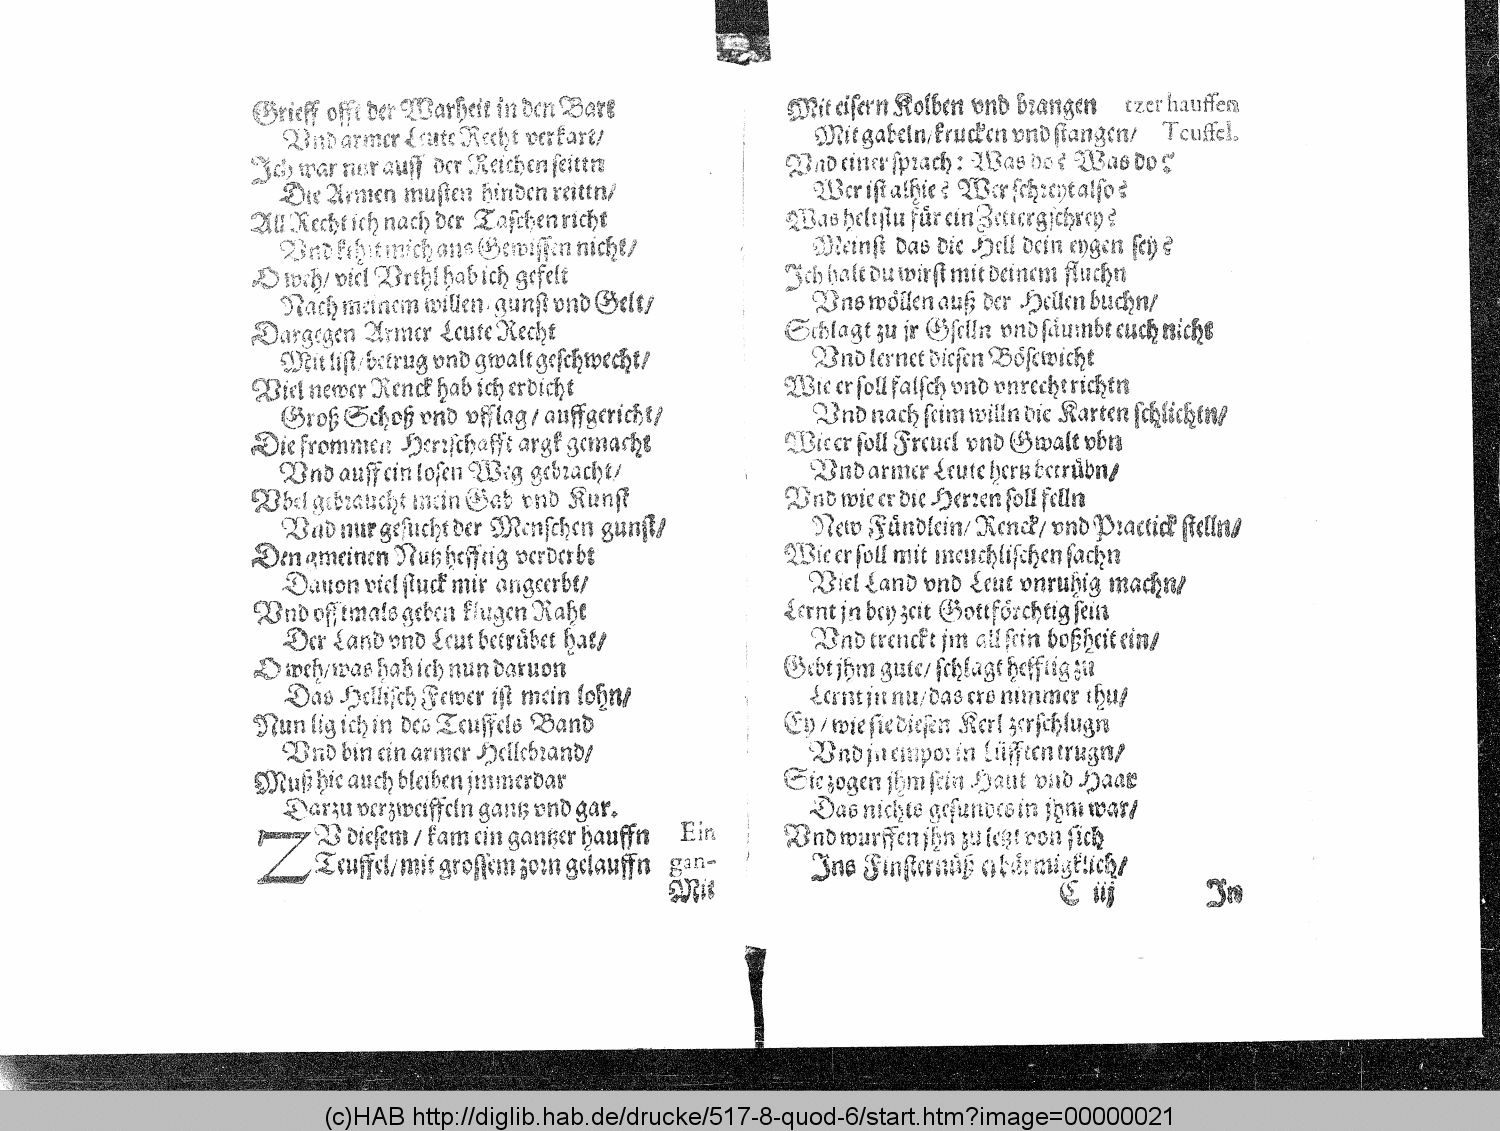 Grieff offt der Warheit in den Bart
Vnd armer Leute Recht verkart/
Ich war nur auff der Reichen seittn
Die Armen musten hinden reittn/
All Recht ich nach der Taschen richt
Vnd kehrt mich ans Gewissen nicht/
O weh/ viel Vrthl hab ich gefelt
Nach meinem willen, gunst vnd Gelt/
Dargegen Armer Leute Recht
Mit list/betrug vnd gwalt geschwecht/
Viel newer Renck hab ich erdicht
Groß Schoß vnd vfflag/ auffgericht/
Die frommen Herrschafft argk gemacht
Vnd auff ein losen Weg gebracht/
Vbel gebraucht mein Gab vnd Kunst
Vnd nur gesucht der Menschen gunst/
Den gmeinen Nutz hefftig verderbt
Dauon viel stuck mir angeerbt/
Vnd offtmals geben klugen Raht
Der Land vnd Leut betrübet hat/
O weh/was hab ich nun daruon
Das Hellisch Fewer ist mein lohn/
Nun lig ich in des Teuffels Band
Vnd bin ein armer Hellebrand/
Muß hie auch bleiben jmmerdar
Darzu verzweiffeln gantz vnd gar.
ZV diesem / kam ein gantzer hauffn Ein
Teuffel/mit grossem zorn gelauffn gan-
Mit
Mit eisern Kolben vnd brangen tzer hauffen
Mit gabeln/krucken vnd stangen/ Teuffel.
Vnd einer sprach: Was do? Was do?
Wer ist alhie? Wer schreyt also?
Was heltstu für ein Zettergschrey?
Meinst das die Hell dein eygen sey?
Ich halt du wirst mit deinem fluchn
Vns wöllen auß der Hellen buchn/
Schlagt zu jr Gselln vnd säumbt euch nicht
Vnd lernet diesen Bösewicht
Wie er soll falsch vnd vnrecht richtn
Vnd nach seim willn die Karten schlichtn/
Wie er soll Freuel vnd Gwalt vbn
Vnd armer Leute hertz betrübn/
Vnd wie er die Herren soll felln
New Fündlein/ Renck/ vnd Practick stelln/
Wie er soll mit meuchlischen sachn
Viel Land vnd Leut vnruhig machn/
Lernt jn bey zeit Gottförchtig sein
Vnd trenckt jm all sein boßheit ein/
Gebt jhm gute/ schlagt hefftig zu
Lernt jn nu/das ers nimmer thu/
Ey / wie sie diesen Kerl zerschlugn
Vnd jn empor in Lüfften trugn/
Sie zogen jhm sein Haut vnd Haar
Das nichts gesundes in jhm war/
Vnd wurffen jhn zu letzt von sich
Ins Finsternüß erbärmigklich/
C iij In
(c)HAB http://diglib.hab.de/drucke/517-8-quod-6/start.htm?image=00000021